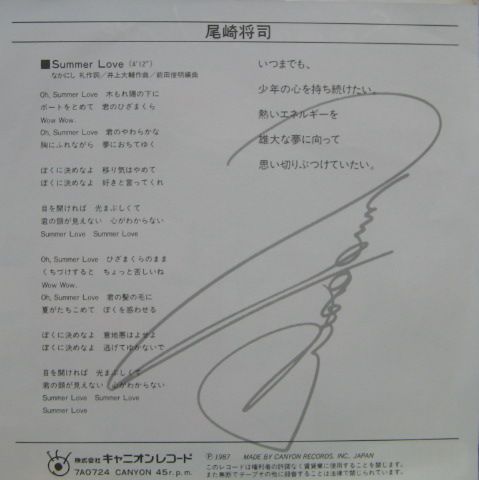 尾崎将司
■Summer Love (4'12")
なかにし礼作詞／井上大輔作曲／前田俊明編曲
Oh, Summer Love 木もれ陽の下に
ボートをとめて 君のひざまくら
Wow Wow.
Oh, Summer Love 君のやわらかな
胸にふれながら 夢におちてゆく
ぼくに決めなよ 移り気はやめて
ぼくに決めなよ 好きと言ってくれ
目を開ければ 光まぶしくて
君の顔が見えない 心がわからない
Summer Love Summer Love
Oh, Summer Love ひざまくらのまま
くちづけすると ちょっと苦しいね
Wow Wow.
Oh, Summer Love 君の髪の毛に
夏がたちこめて ぼくを惑わせる
ぼくに決めなよ 意地悪はよせよ
ぼくに決めなよ 逃げてゆかないで
目を開ければ 光まぶしくて
君の顔が見えない 心がわからない
Summer Love Summer Love
Summer Love
いつまでも、
少年の心を持ち続けたい。
熱いエネルギーを
雄大な夢に向って
思い切りぶつけていたい。
株式会社 キャニオンレコード
7A0724 CANYON 45r.p.m.
Ⓟ1987 MADE BY CANYON RECORDS, INC. JAPAN
このレコードは権利者の許諾なく賃貸業に使用することを禁じます。
また無断でテープその他に録音することは法律で禁じられています。